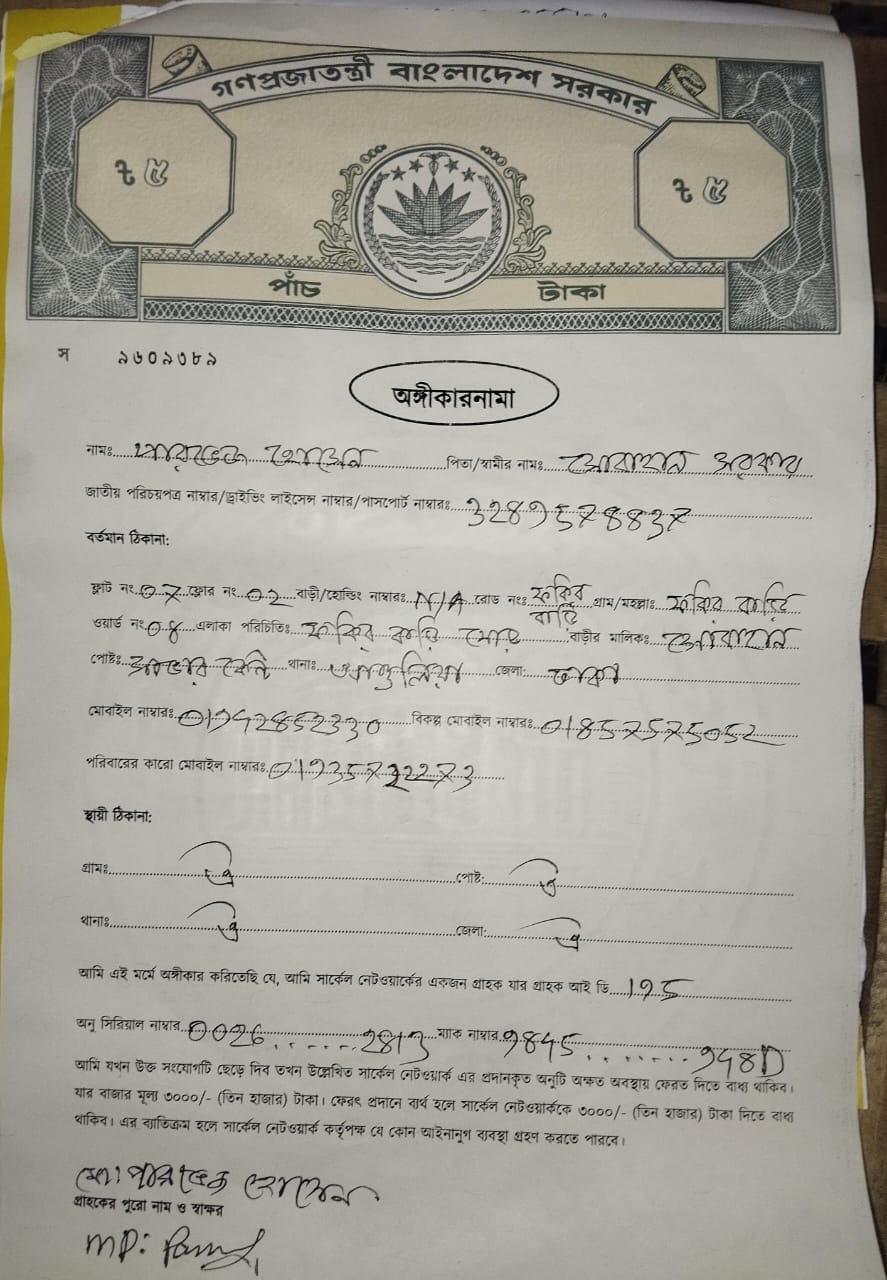 গণপ্রজাতন্ত্রী বাংলাদেশ সরকার
৳ ৫ ৳ ৫
পাঁচ টাকা
স ৯৬০৯৩৮৯
অঙ্গীকারনামা
নামঃ পারভেজ হোসেন পিতা/স্বামীর নামঃ সোবাহান সরকার
জাতীয় পরিচয়পত্র নাম্বার/ড্রাইভিং লাইসেন্স নাম্বার/পাসপোর্ট নাম্বারঃ
বর্তমান ঠিকানা:
ফ্লাট নং ফ্লোর নং 02 বাড়ী/হোল্ডিং নাম্বারঃ N/A রোড নংঃ ফকির বাড়ি গ্রাম/মহল্লাঃ ফকির বাড়ি
ওয়ার্ড নং 04 এলাকা পরিচিতিঃ ফকির বাড়ি মোড় বাড়ীর মালিকঃ সোবাহান
পোষ্টঃ থানাঃ আশুলিয়া জেলা: ঢাকা
মোবাইল নাম্বারঃ বিকল্প মোবাইল নাম্বারঃ
পরিবারের কারো মোবাইল নাম্বারঃ
স্থায়ী ঠিকানা:
গ্রামঃ ঐ পোষ্ট: ঐ
থানাঃ ঐ জেলা: ঐ
আমি এই মর্মে অঙ্গীকার করিতেছি যে, আমি সার্কেল নেটওয়ার্কের একজন গ্রাহক যার গ্রাহক আই ডি 195
অনু সিরিয়াল নাম্বার 0026 ...... 2813 ম্যাক নাম্বার 9845 ........ 948D
আমি যখন উক্ত সংযোগটি ছেড়ে দিব তখন উল্লেখিত সার্কেল নেটওয়ার্ক এর প্রদানকৃত অনুটি অক্ষত অবস্থায় ফেরত দিতে বাধ্য থাকিব।
যার বাজার মূল্য ৩০০০/- (তিন হাজার) টাকা। ফেরৎ প্রদানে ব্যর্থ হলে সার্কেল নেটওয়ার্ককে ৩০০০/- (তিন হাজার) টাকা দিতে বাধ্য
থাকিব। এর ব্যতিক্রম হলে সার্কেল নেটওয়ার্ক কর্তৃপক্ষ যে কোন আইনানুগ ব্যবস্থা গ্রহণ করতে পারবে।
মোঃ পারভেজ হোসেন
গ্রাহকের পুরো নাম ও স্বাক্ষর
MD: